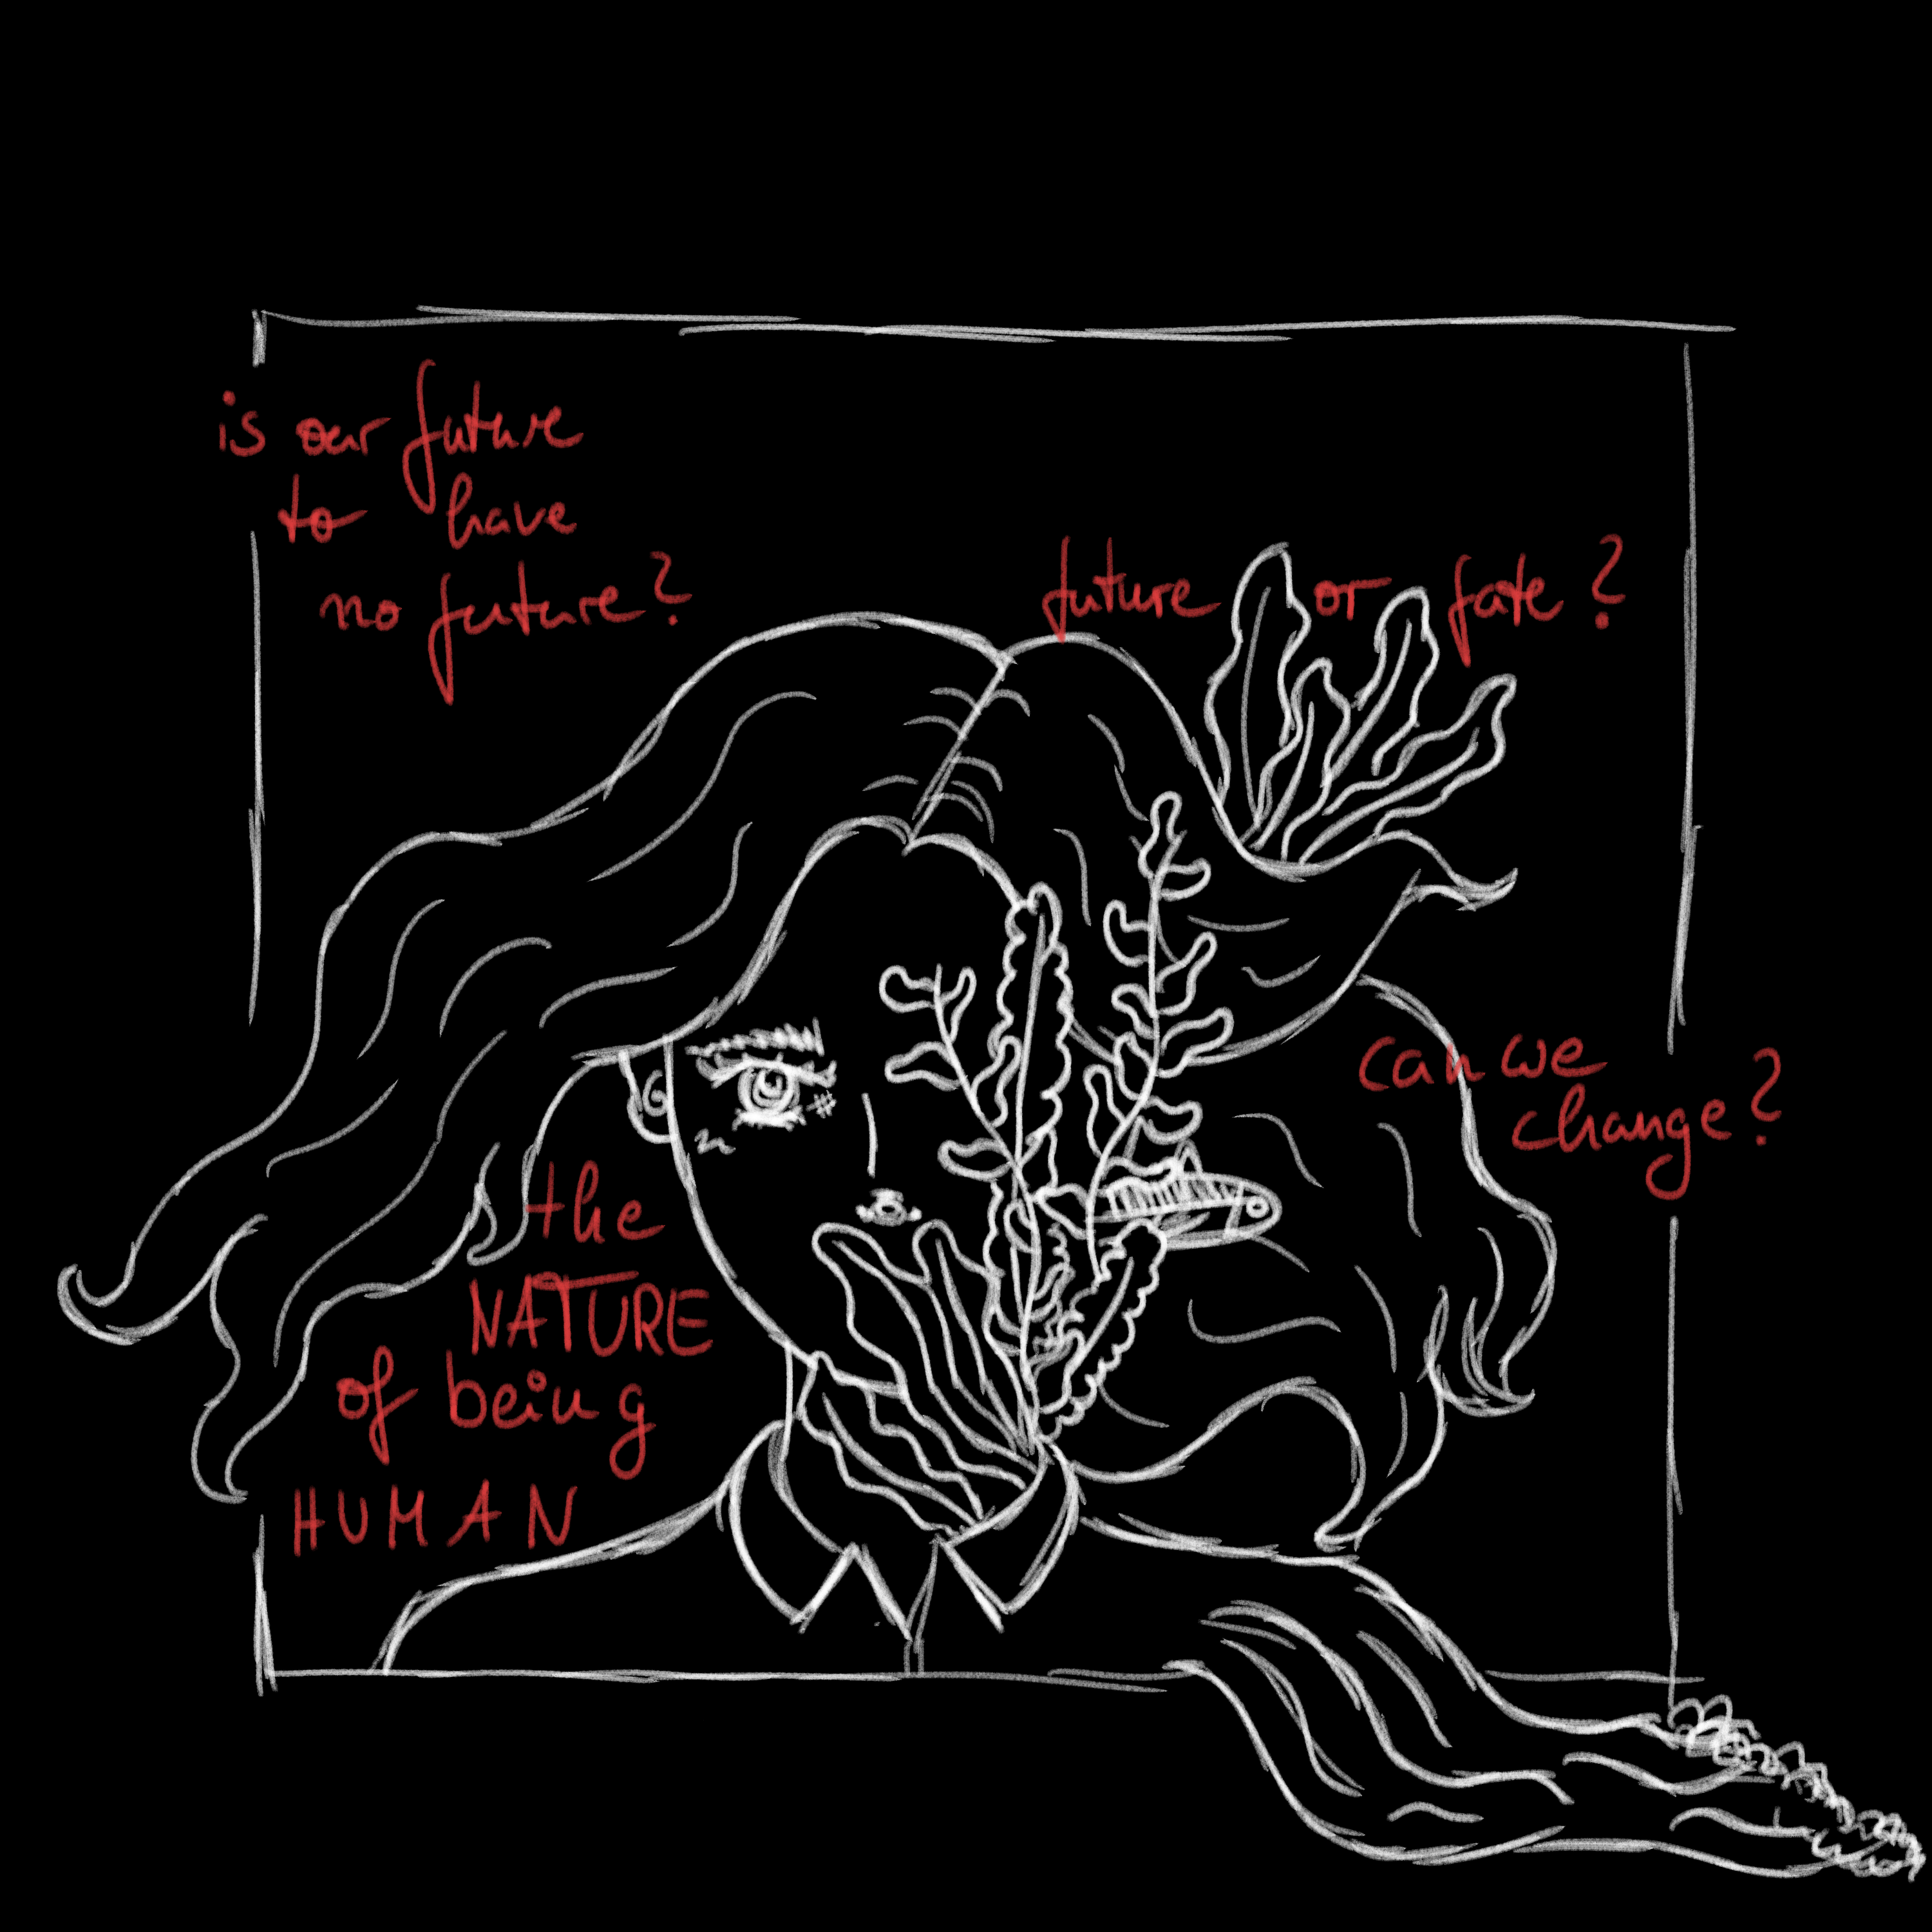 is our future
to have
no future?
future or fate?
can we
change?
the
NATURE
of being
HUMAN